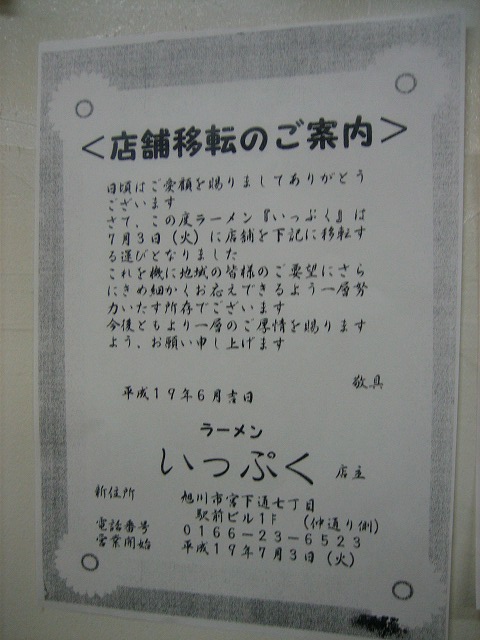 ＜店舗移転のご案内＞
日頃はご愛顧を賜りましてありがとう
ございます
さて、この度ラーメン『いっぷく』は
7月3日（火）に店舗を下記に移転す
る運びとなりました
これを機に地域の皆様のご要望にさら
にきめ細かくお応えできるよう一層努
力いたす所存でございます
今後ともより一層のご厚情を賜ります
よう、お願い申し上げます
敬具
平成19年6月吉日
ラーメン
いっぷく 店主
新住所 旭川市宮下通七丁目
駅前ビル1F （仲通り側）
電話番号 0166-23-6523
営業開始 平成19年7月3日（火）